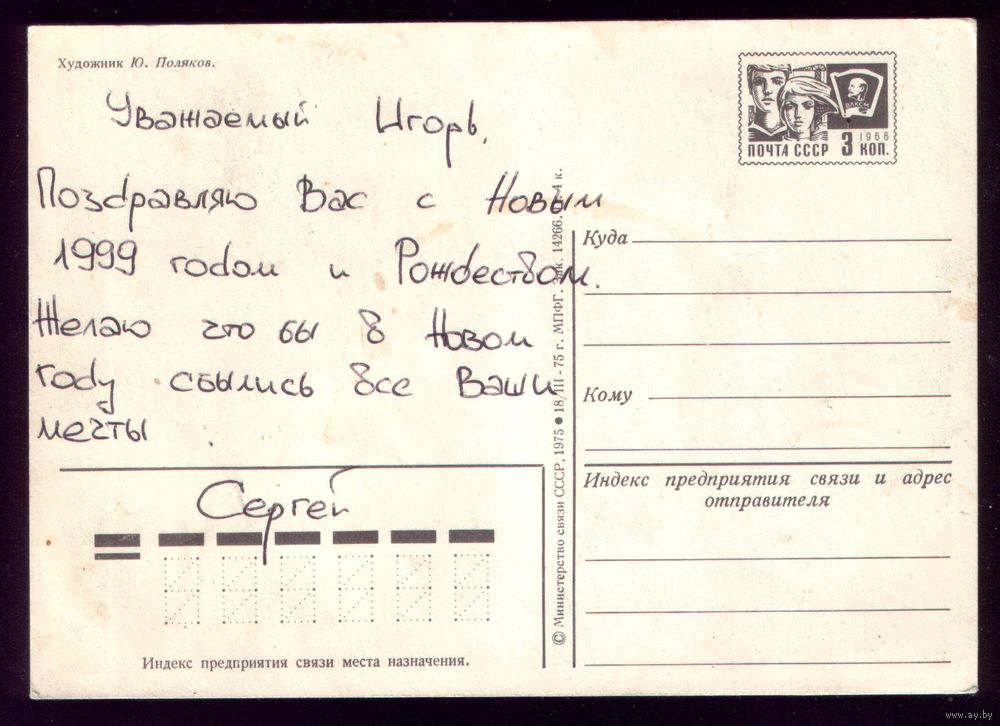 Художник Ю. Поляков.
Уважаемый Игорь,
Поздравляю Вас с Новым
1999 годом и Рождеством.
Желаю что бы в Новом
году сбылись все Ваши
мечты.
Сергей
Индекс предприятия связи места назначения.
© Министерство связи СССР, 1975 ● 18/III-75 г. МПФГ. Зак. 14266. 4 к.
ВЛКСМ
1966
ПОЧТА СССР 3 КОП.
Куда
Кому
Индекс предприятия связи и адрес
отправителя
www.ay.by